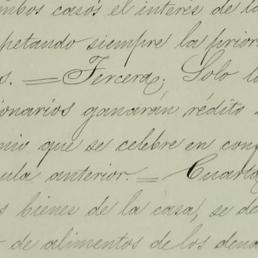 ambos casos el interés de la
petando siempre la prior
s. = Tercera; Solo l
cionarios ganarán rédito
mio que se celebre en con
ula anterior. = Cuarta
s bienes de la casa, se de
de alimentos de los dem